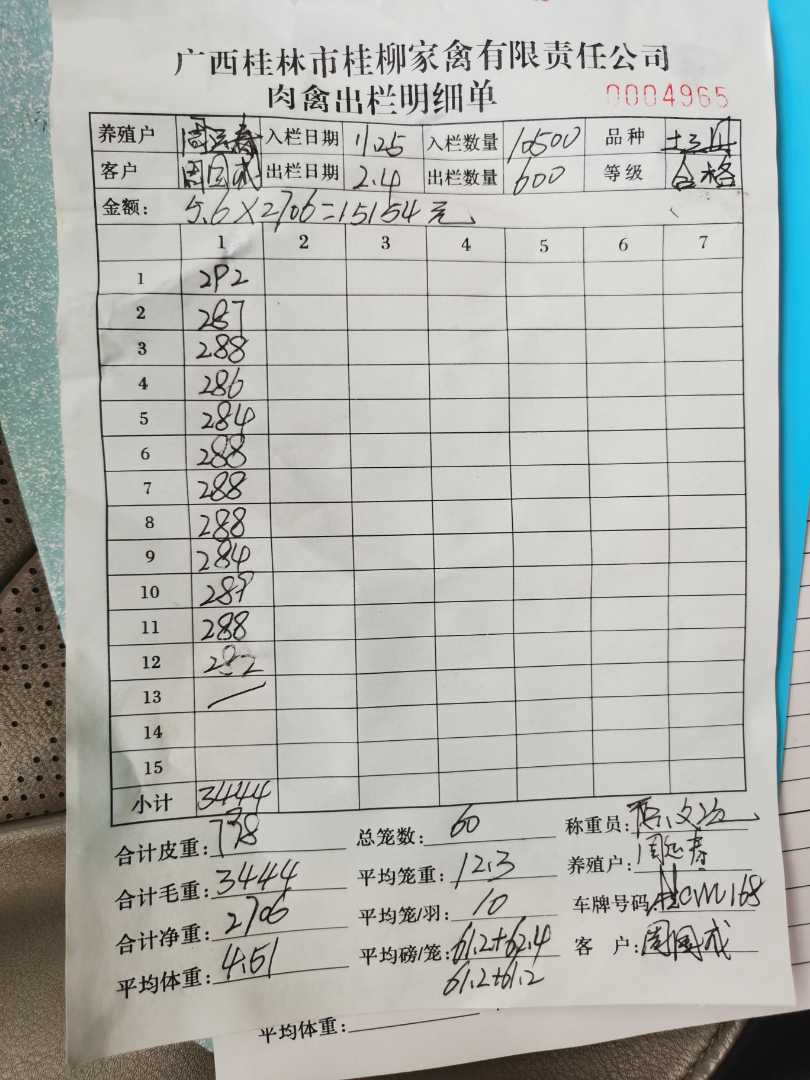 广西桂林市桂柳家禽有限责任公司
肉禽出栏明细单 0004965
养殖户 周远春 入栏日期 11.25 入栏数量 10500 品种 土三
客户 周国成 出栏日期 2.4 出栏数量 600 等级 合格
金额: 5.6×2706=15154元
1 2 3 4 5 6 7
1 292
2 287
3 288
4 286
5 284
6 288
7 288
8 288
9 284
10 289
11 288
12 282
13
14
15
小计 3444
合计皮重: 738 总笼数: 60 称重员:
合计毛重: 3444 平均笼重: 12.3 养殖户: 周远春
合计净重: 2706 平均笼/羽: 10 车牌号码: 168
平均体重: 4.51 平均磅/笼: 61.2+62.4 客 户: 周国成
61.2+61.2
平均体重: